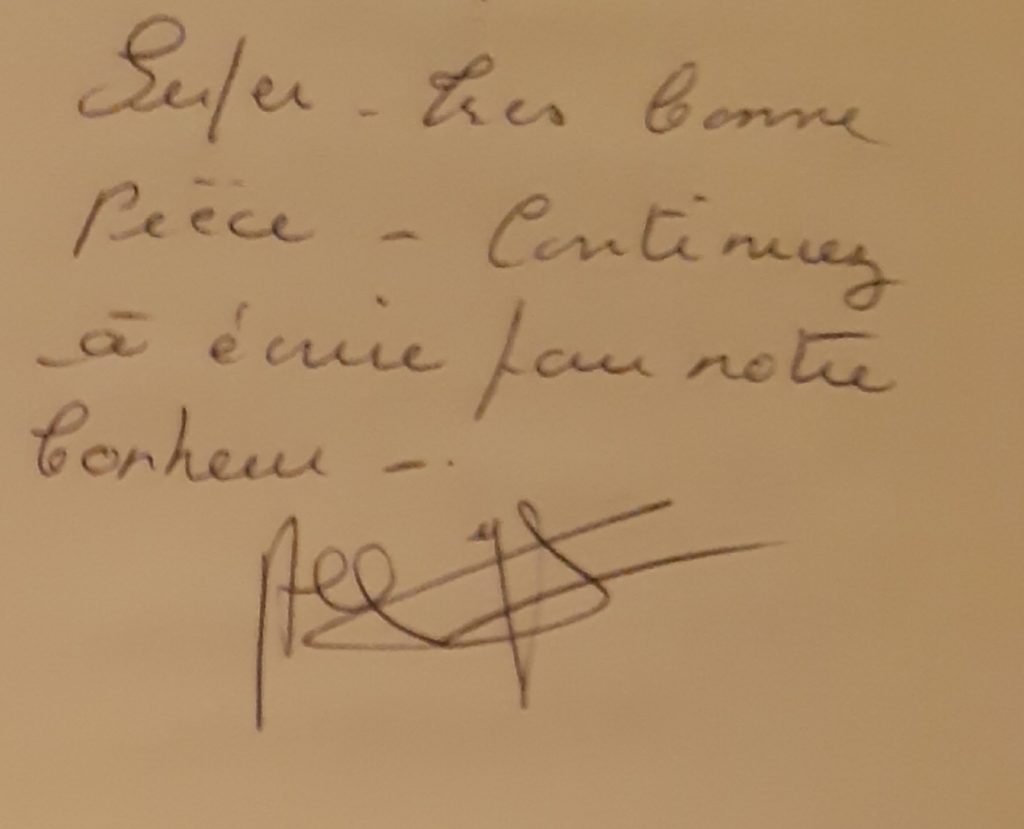 Super - Très bonne
Pièce - Continuez
à écrire pour notre
bonheur -.